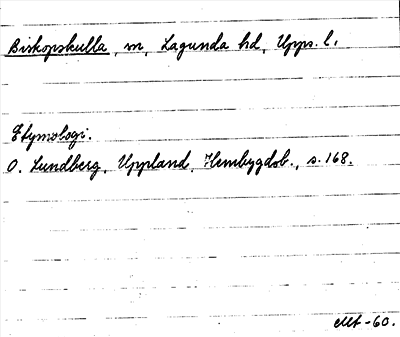 Biskopskulla, sn, Lagunda hd, Upps. l.
Etymologi.
O. Lundberg, Uppland, Hembygdob., s. 168.
-60.